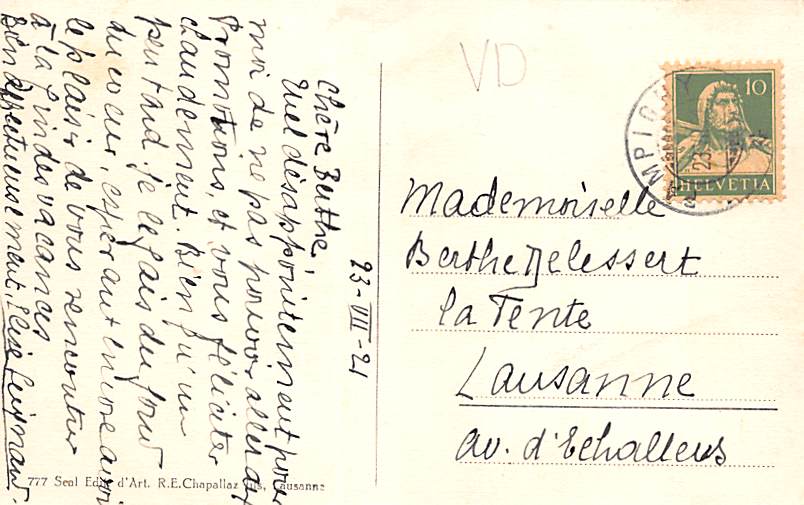 Chère Berthe,
Quel désappointement pour
moi de ne pas pouvoir aller aux
Promotions, et vous féliciter
chaudement. Bien qu'un
peu tard je le fais du fond
du coeur, espérant encore avoir
le plaisir de vous rencontrer
à la fin des vacances
Bien affectueusement, Elise
23-VII-21
VD
10
HELVETIA
Mademoiselle
Berthe Delessert
La Tente
Lausanne
Av. d'Echallens
777 Seal Edit. d'Art. R.E. Chapallaz fils, Lausanne